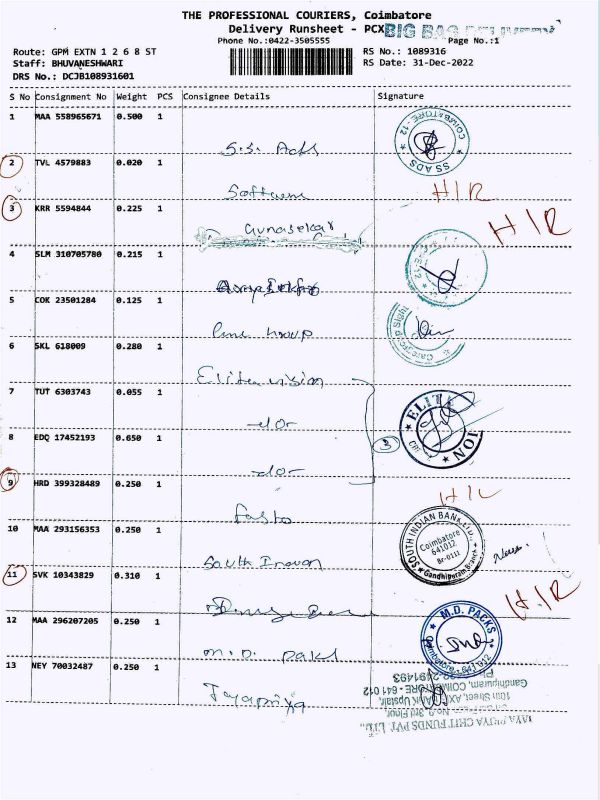 THE PROFESSIONAL COURIERS, Coimbatore
Delivery Runsheet - PCX BIG BAG DELIVERY
Phone No.:0422-3505555
Page No.:1
Route: GPM EXTN 1 2 6 8 ST
RS No.: 1089316
Staff: BHUVANESHWARI
RS Date: 31-Dec-2022
DRS No.: DCJB108931601
S No Consignment No Weight PCS Consignee Details Signature
1 MAA 558965671 0.500 1
S.S. Ads
COIMBATORE - 12 SS ADS
2 TVL 4579883 0.020 1
Software H/R
3 KRR 5594844 0.225 1
Gunasekar H/R
4 SLM 310705780 0.215 1
5 COK 23501284 0.125 1
6 SKL 618009 0.280 1
Elite vision
7 TUT 6303743 0.055 1
-do-
ELITE
8 EDQ 17452193 0.650 1
3
-do-
9 HRD 399328489 0.250 1
Fasto
10 MAA 293156353 0.250 1
SOUTH INDIAN BANK Ltd.
Coimbatore
641012
Br-0111
Gandhipuram Branch
South Indian
11 SVK 10343829 0.310 1
H/R
12 MAA 296207205 0.250 1
M.D. PACKS
Coimbatore - 641 012
M.D. Pack
13 NEY 70032487 0.250 1
Jayapriya
JAYA PRIYA CHIT FUNDS PVT. LTD.,
3rd Floor,
10th Street, AXIS BANK Upstair,
Gandhipuram, COIMBATORE - 641 012